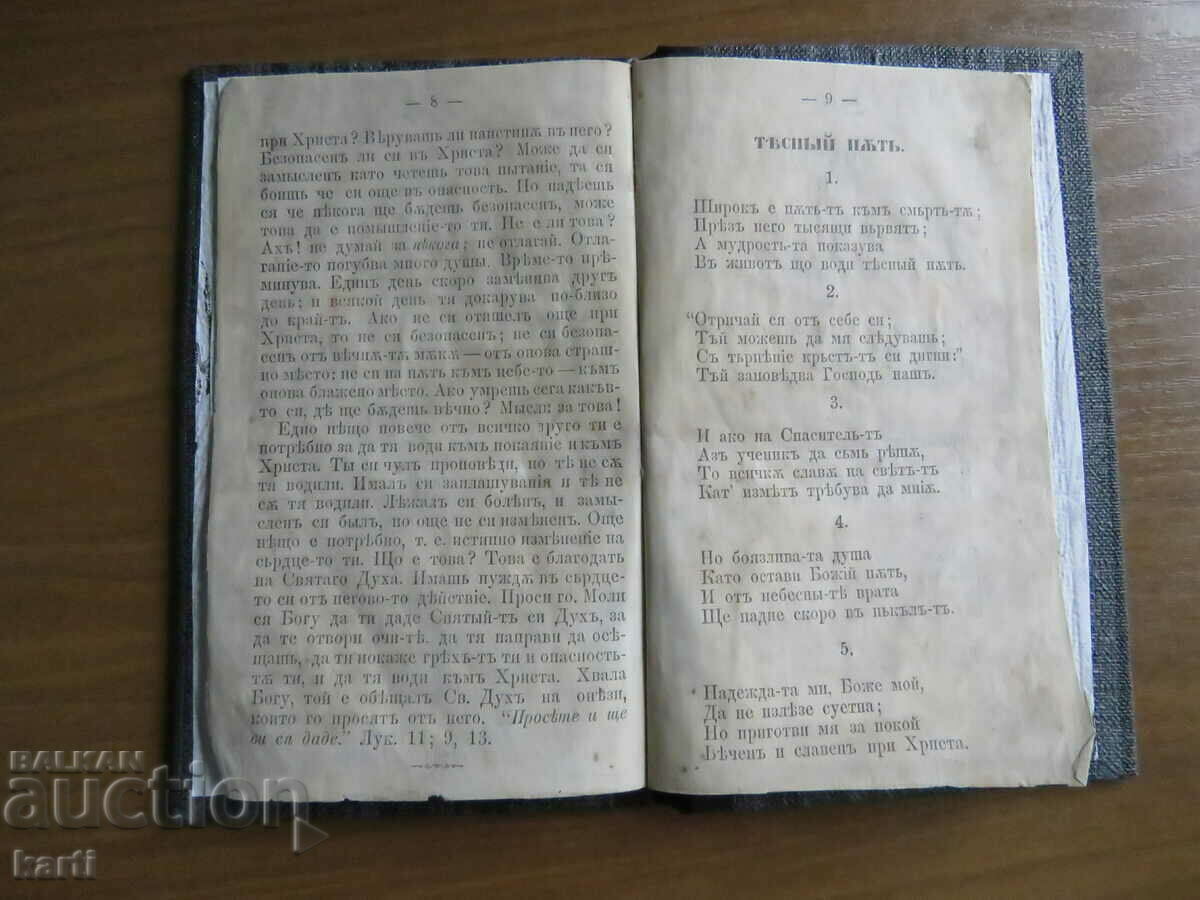 — 8 —
при Христа? Вѣрувашь ли наистинѫ въ него?
Безопасенъ ли си въ Христа? Може да си
замысленъ като четешь това пытаніе, та ся
боишь че си още въ опасность. Но надѣешь
ся че нѣкога ще бѫдешь безопасенъ, може
това да е помышленіе-то ти. Не е ли това?
Ахъ! не думай за нѣкога; не отлагай. Отла-
ганіе-то погубва много душы. Врѣме-то прѣ-
минува. Единъ день скоро замѣнива другъ
день; и всякой день тя докарува по-близо
до край-тъ. Ако не си отишелъ още при
Христа, то не си безопасенъ; не си безопа-
сенъ отъ вѣчнѫ-тѫ мѫкѫ — отъ онова страш-
но мѣсто; не си на пѫть къмъ небе-то — къмъ
онова блажено мѣсто. Ако умрешь сега какъв-
то си, дѣ ще бѫдешь вѣчно? Мысли за това!
Едно нѣщо повече отъ всичко друго ти е
потрѣбно за да тя води къмъ покаяніе и къмъ
Христа. Ты си чулъ проповѣди, но тѣ не сѫ
тя водили. Ималъ си заплашувания и тѣ не
сѫ тя водили. Лѣжалъ си болѣнъ, и замы-
сленъ си былъ, но още не си измѣненъ. Още
нѣщо е потрѣбно, т. е. истинно измѣненіе на
сърдце-то ти. Що е това? Това е благодать
на Святаго Духа. Имашь нуждѫ въ сърдце-
то си отъ негово-то дѣйствіе. Проси го. Моли
ся Богу да ти даде Святый-тъ си Духъ, за
да те отвори очи-тѣ, да тя направи да осѣ-
щашь, да ти покаже грѣхъ-тъ ти и опасность-
тѫ ти, и да тя води къмъ Христа. Хвала
Богу, той е обѣщалъ Св. Духъ на онѣзи,
които го просятъ отъ него. "Просѣте и ще
ви ся даде." Лук. 11; 9, 13.
— 9 —
ТѢСНЫЙ ПѪТЬ.
1.
Широкъ е пѫть-тъ къмъ смърть-тѫ;
Прѣзъ него тысящи вървятъ;
А мудрость-та показува
Въ животъ що води тѣсный пѫть.
2.
"Отричай ся отъ себе си;
Тъй можешь да мя слѣдувашь;
Съ търпѣніе кръстъ-тъ си дигни:"
Тъй заповѣдва Господь нашъ.
3.
И ако на Спаситель-тъ
Азъ ученикъ да съмь рѣшѫ,
То всичкѫ славѫ на свѣтъ-тъ
Кат' измѣтъ трѣбува да мніѫ.
4.
Но боязлива-та душа
Като остави Божій пѫть,
И отъ небесны-тѣ врата
Ще падне скоро въ пькълъ-тъ.
5.
Надежда-та ми, Боже мой,
Да не излѣзе суетна;
Но приготви мя за покой
Вѣченъ и славенъ при Христа.
BALKAN
auction
karti